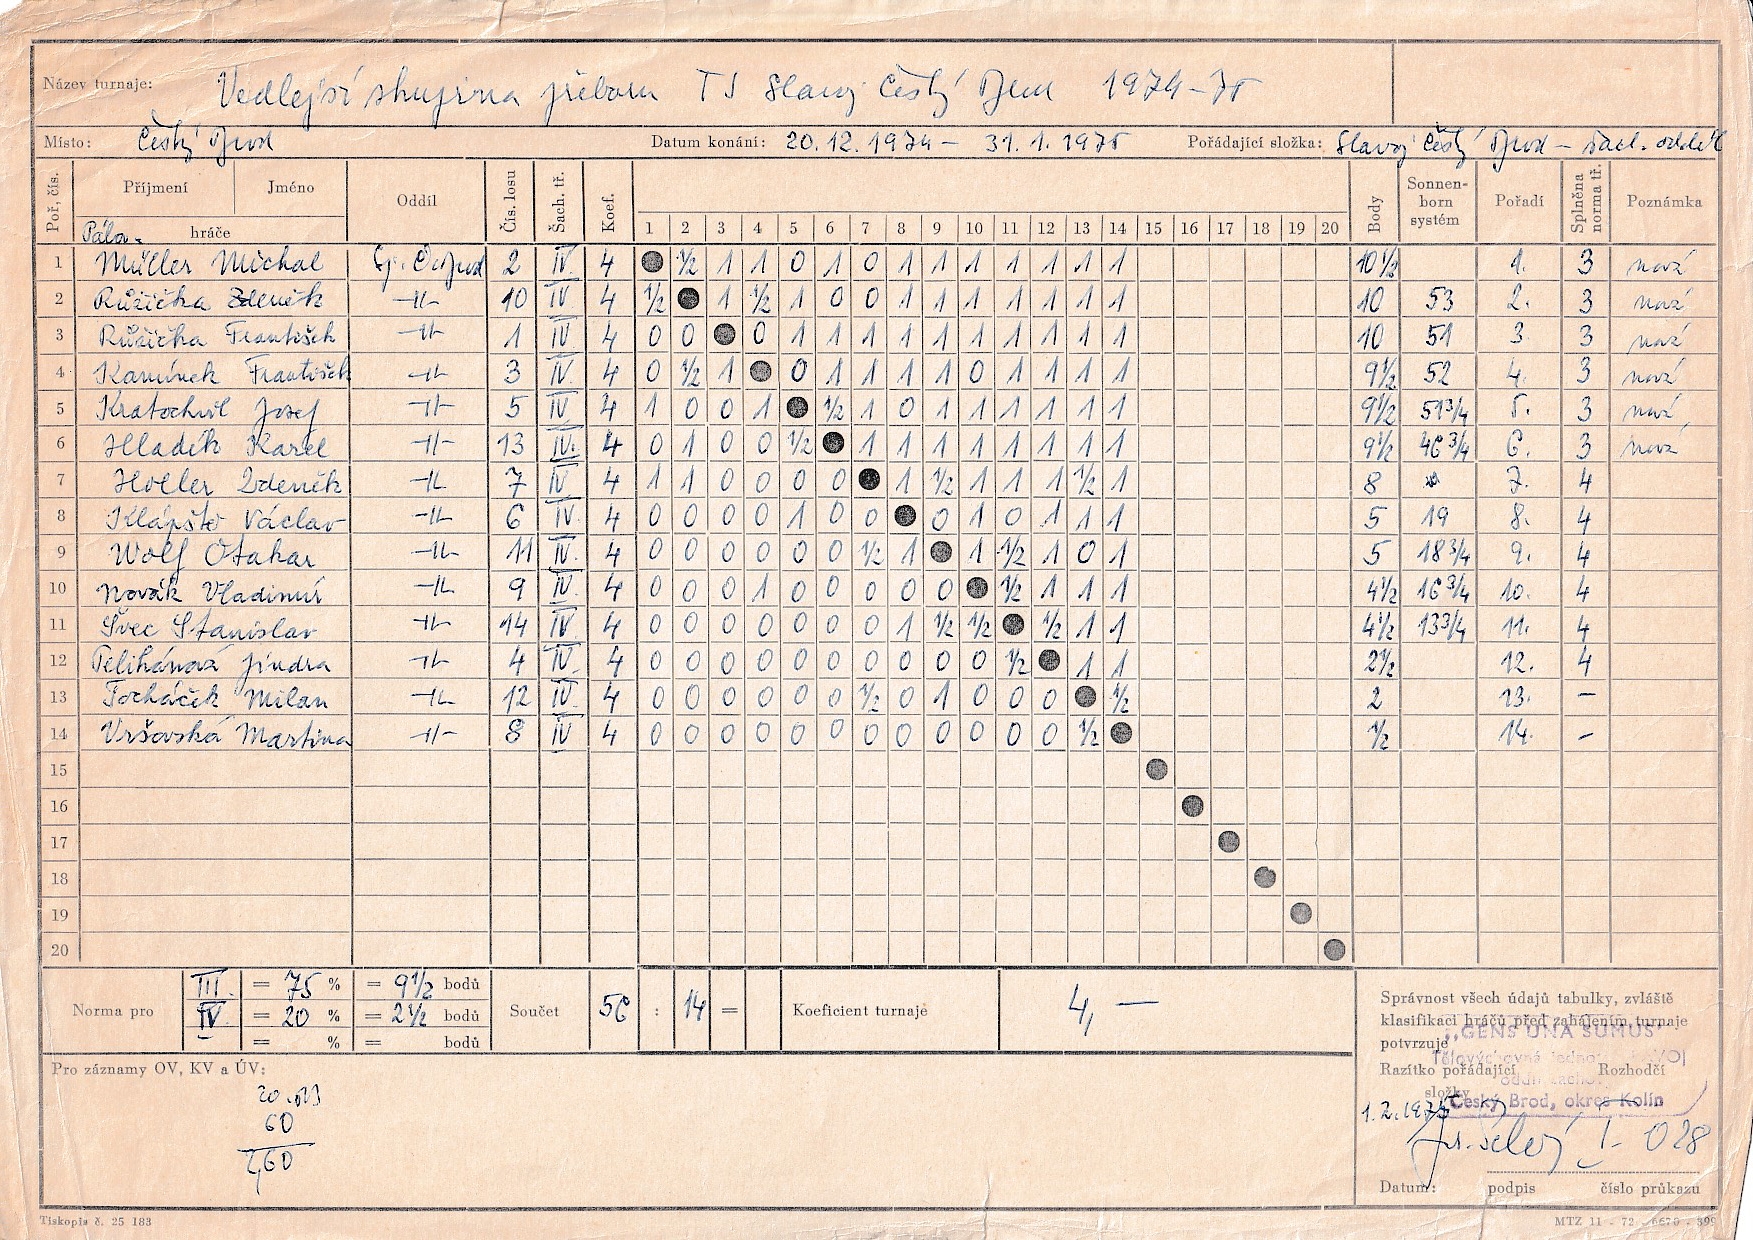 Název turnaje: Vedlejší skupina přeboru TJ Slavoj Český Brod 1974-75
Místo: Český Brod Datum konání: 20.12.1974 - 31.1.1975 Pořádající složka: Slavoj Český Brod - šach. oddíl
Poř. čís. Příjmení Jméno hráče Oddíl Čís. losu Šach. tř. Koef. 1 2 3 4 5 6 7 8 9 10 11 12 13 14 15 16 17 18 19 20 Body Sonnen-born systém Pořadí Splněna norma tř. Poznámka
1 Müller Michal 2 IV. 4 ● ½ 1 1 0 1 0 1 1 1 1 1 1 1 10½ 1. 3 nová
2 Růžička Zdeněk -II- 10 IV 4 ½ ● 1 ½ 1 0 0 1 1 1 1 1 1 1 10 53 2. 3 nová
3 Růžička František -II- 1 IV 4 0 0 ● 0 1 1 1 1 1 1 1 1 1 1 10 51 3. 3 nová
4 Kamínek František -II- 3 IV. 4 0 ½ 1 ● 0 1 1 1 1 0 1 1 1 1 9½ 52 4. 3 nová
5 Kratochvíl Josef -II- 5 IV 4 1 0 0 1 ● ½ 1 0 1 1 1 1 1 1 9½ 51¾ 5. 3 nová
6 Hladík Karel -II- 13 IV. 4 0 1 0 0 ½ ● 1 1 1 1 1 1 1 1 9½ 46¾ 6. 3 nová
7 Holler Zdeněk -II- 7 IV 4 1 1 0 0 0 0 ● 1 ½ 1 1 1 ½ 1 8 7. 4
8 Klápště Václav -II- 6 IV. 4 0 0 0 0 1 0 0 ● 0 1 0 1 1 1 5 19 8. 4
9 Wolf Otakar -II- 11 IV. 4 0 0 0 0 0 0 ½ 1 ● 1 ½ 1 0 1 5 18¾ 9. 4
10 Novák Vladimír -II- 9 IV. 4 0 0 0 1 0 0 0 0 0 ● ½ 1 1 1 4½ 16¾ 10. 4
11 Švec Stanislav -II- 14 IV. 4 0 0 0 0 0 0 0 1 ½ ½ ● ½ 1 1 4½ 13¾ 11. 4
12 Jindra -II- 4 IV. 4 0 0 0 0 0 0 0 0 0 0 ½ ● 1 1 2½ 12. 4
13 Milan -II- 12 IV 4 0 0 0 0 0 0 ½ 0 1 0 0 0 ● ½ 2 13. -
14 Vršovská Martina -II- 8 IV 4 0 0 0 0 0 0 0 0 0 0 0 0 ½ ● ½ 14. -
15
16
17
18
19
20
Norma pro III. = 75 % = 9½ bodů
IV. = 20 % = 2½ bodů
= % = bodů
Součet 56 : 14 = Koeficient turnaje 4,—
Správnost všech údajů tabulky, zvláště
klasifikaci hráčů před zahájením turnaje
potvrzuje
„GENS UNA SUMUS"
Razítko pořádající složky Rozhodčí
Český Brod, okres Kolín
1.2.1975
I-028
Datum: podpis číslo průkazu
Pro záznamy OV, KV a ÚV:
60
Tiskopis č. 25 183
MTZ 11 - 72 - 6670 - 399